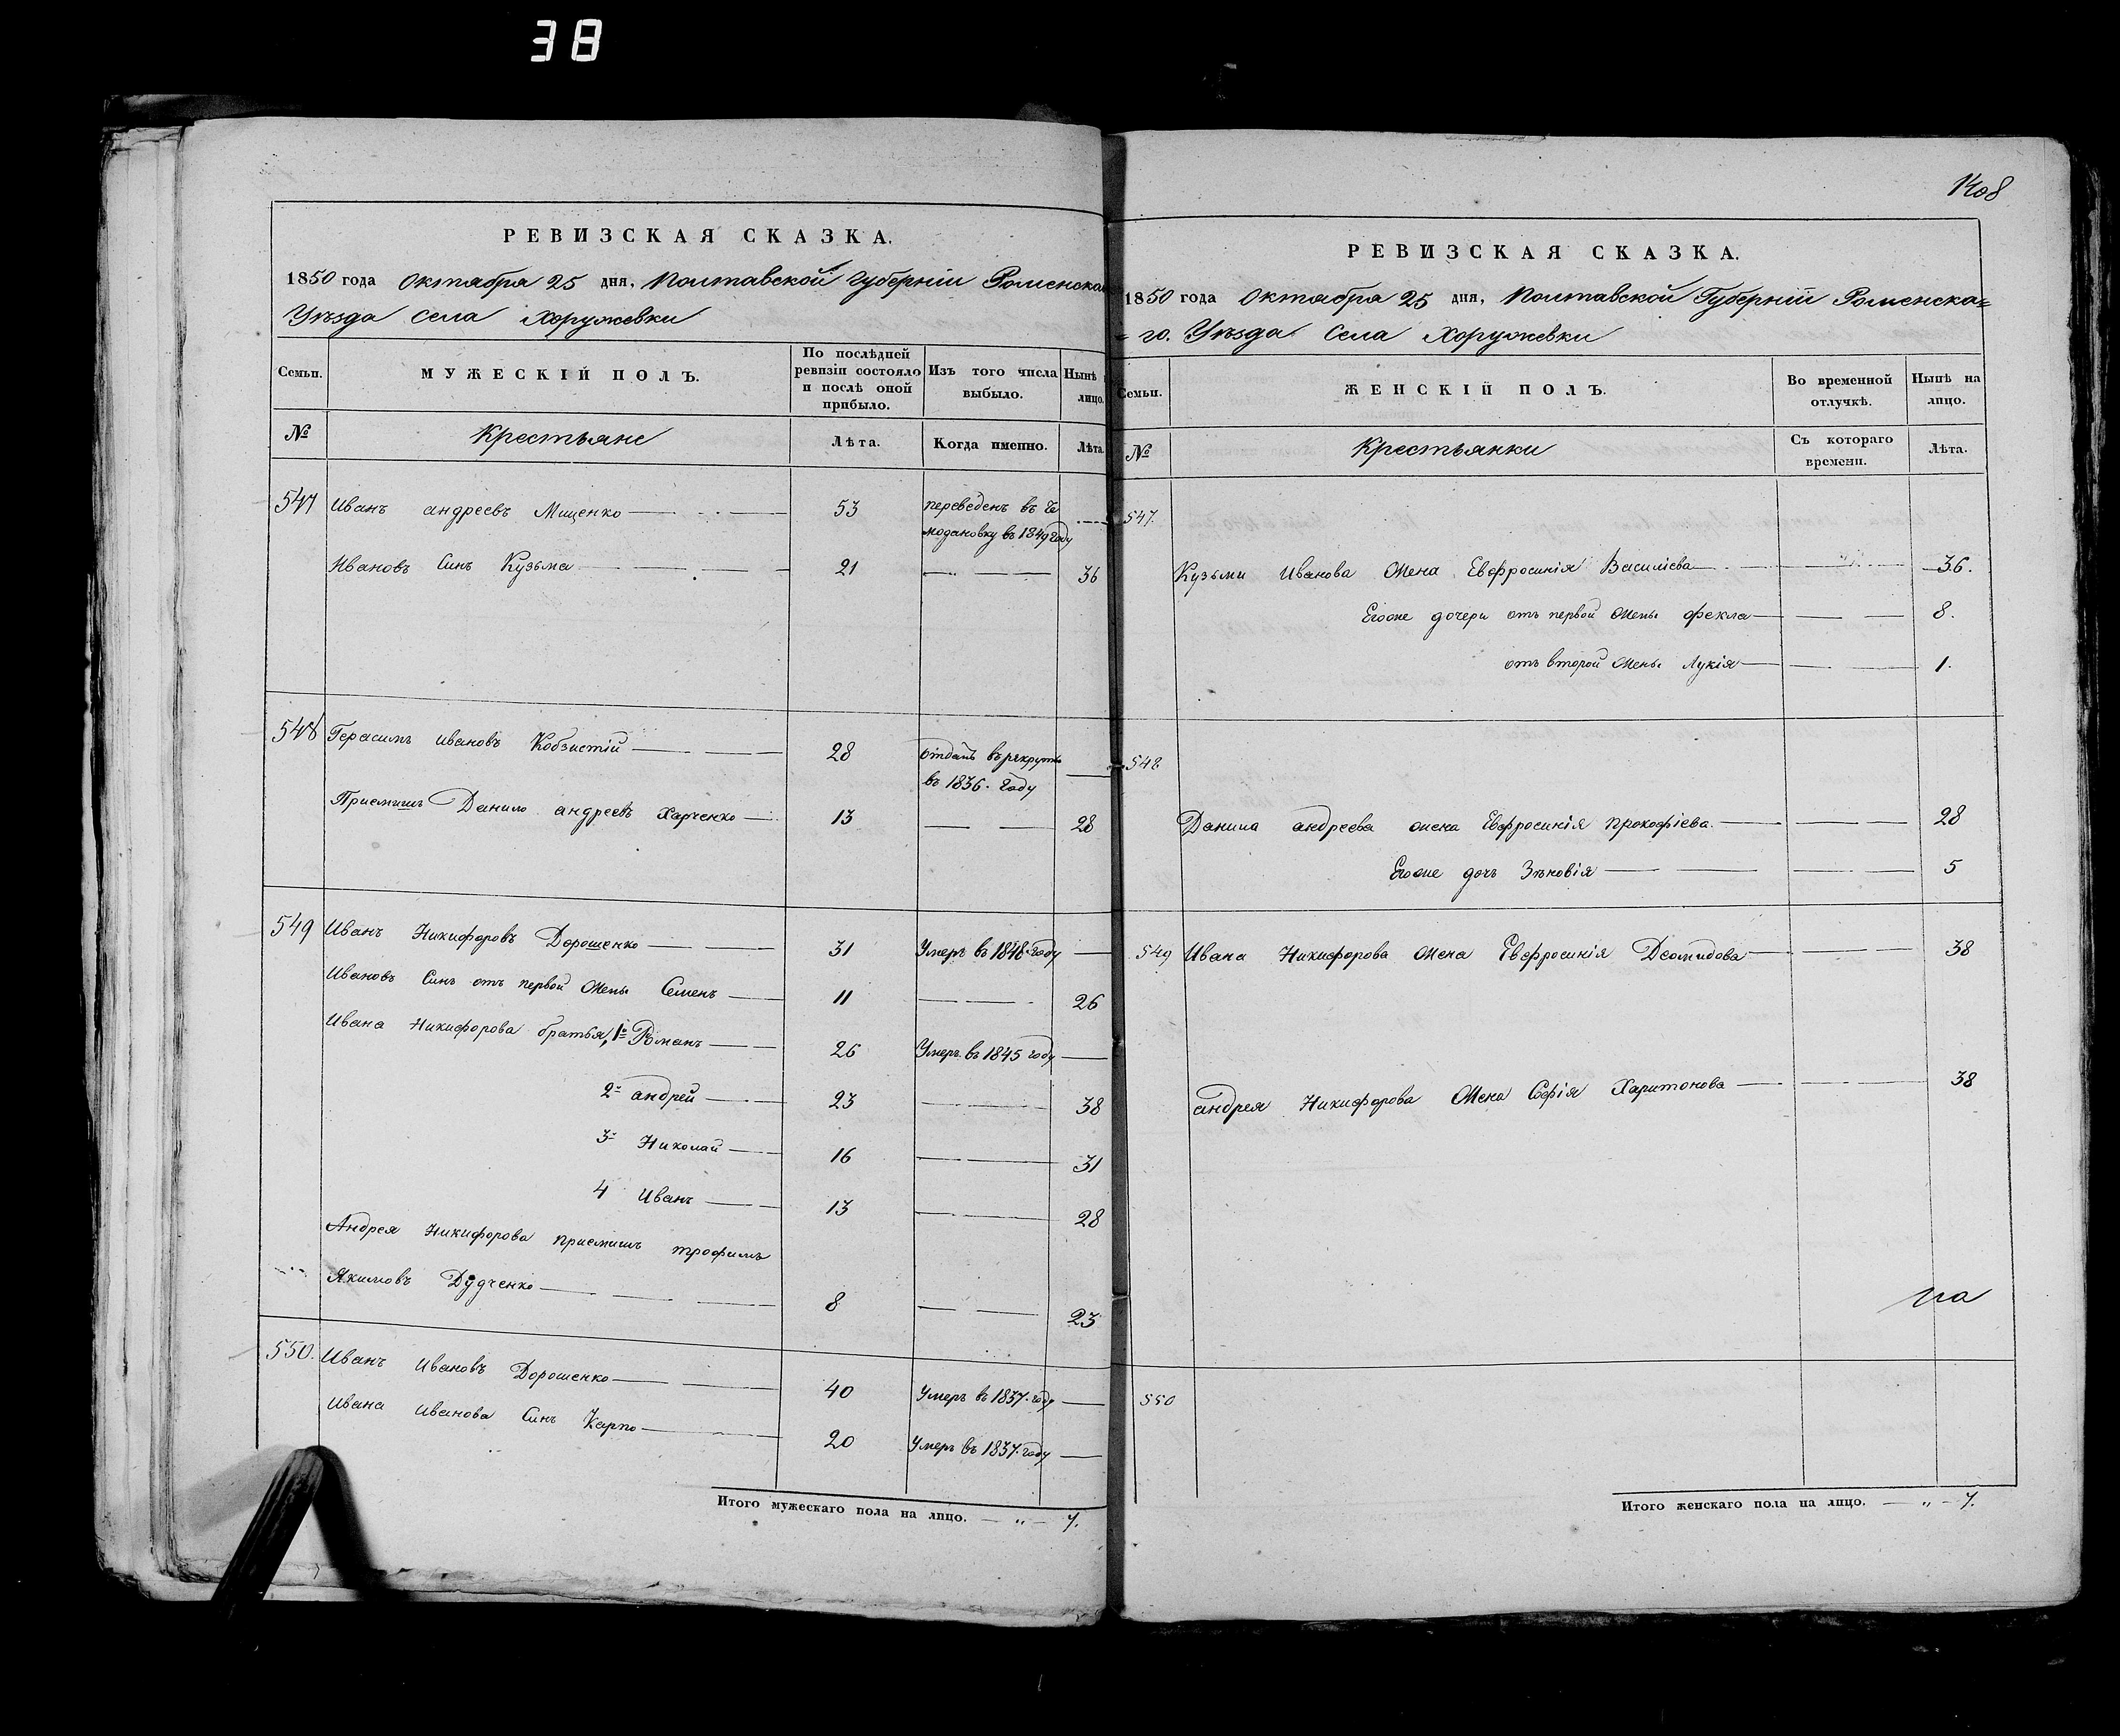 38
РЕВИЗСКАЯ СКАЗКА.
1850 года Октабра 25 дня, Полтавской Губерніи Роменска
Уѣзда Села Хоружевки
Семьи.
МУЖЕСКІЙ ПОЛЪ.
По послѣдней ревизіи состояло и послѣ оной прибыло.
Изъ того числа выбыло.
Нынѣ лицо.
№
Крестьяне
Лѣта.
Когда именно.
Лѣта.
547 Иванъ андреевъ Мищенко 53 переведенъ въ Че
модановку въ 1849 году
Ивановъ Синъ Кузьма 21 36
548 Герасимъ ивановъ Кобзистій 28 отданъ въ рекруты
въ 1836. году
Приемишъ Данило андреевъ Харченко 13 28
549 Иванъ Никифоровъ Дорошенко 31 Умеръ въ 1848. году
Ивановъ Синъ отъ первой жены Семенъ 11 26
Ивана Никифорова братья, 1й Романъ 26 Умеръ въ 1845 году
2й андрей 23 38
3й Николай 16 31
4 Иванъ 13 28
Андрея Никифорова приемишъ трофимъ
Якимовъ Дудченко 8 23
550. Иванъ Ивановъ Дорошенко 40 Умеръ въ 1837. году
Ивана Иванова Синъ Карпо 20 Умеръ въ 1837. году
Итого мужескаго пола на лицо. — „ — 7.
1408
РЕВИЗСКАЯ СКАЗКА.
1850 года Октабра 25 дня, Полтавской Губерніи Роменска=
= го. Уѣзда Села Хоружевки
Семьи.
ЖЕНСКІЙ ПОЛЪ.
Во временной отлучкѣ.
Нынѣ на лицо.
№
Крестьянки
Съ котораго времени.
Лѣта.
547.
Кузьми Иванова Жена Евфросинія Василіева 36.
Егоже дочери отъ первой жены Фекла 8.
отъ второй жены Лукія 1.
548.
Данила андреева жена Евфросинія Прокофіева. 28
Егоже дочь Зѣновія 5
549 Ивана Никифорова Жена Евфросинія Деомидова 38
андрея Никифорова Жена Софія Харитонова 38
550
Итого женскаго пола на лицо. — „ — 7.